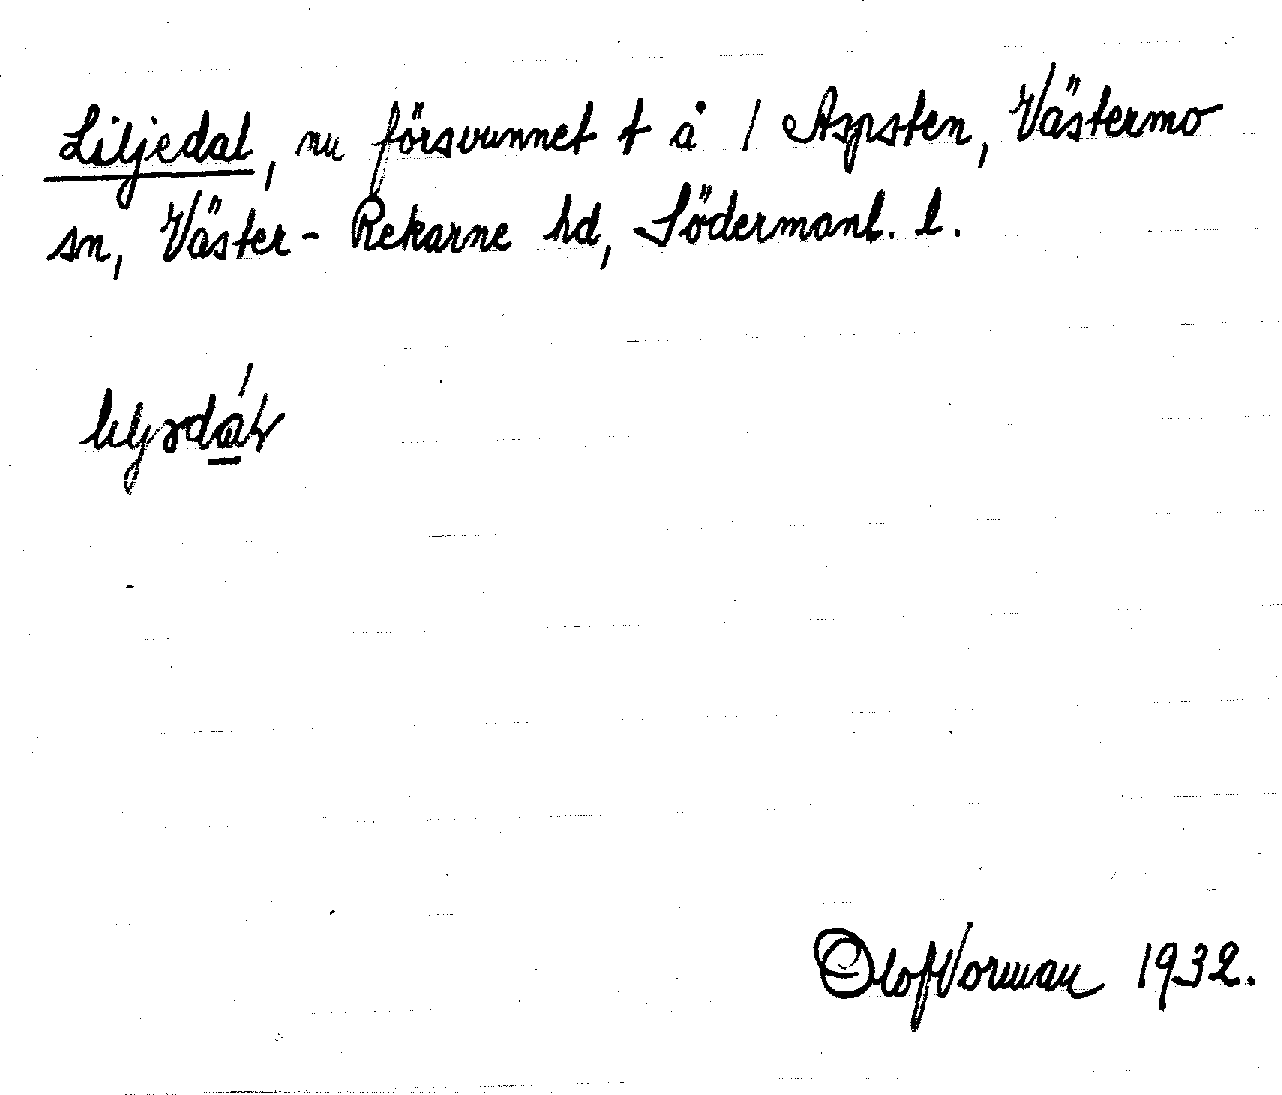 Liljedal, nu försvunnet t å 1 Aspsten, Västermo
sn, Väster-Rekarne hd, Södermanl. l.
Olof Norman 1932.